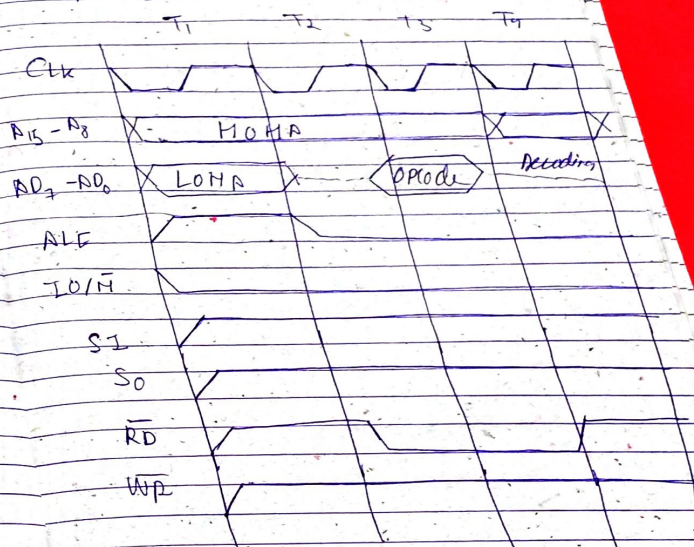 T1 T2 T3 T4
CLK
A15-A8 HOMA
AD7-AD0 LOMA OPCode Decoding
ALE
IO/M̅
S1
S0
R̅D̅
W̅R̅